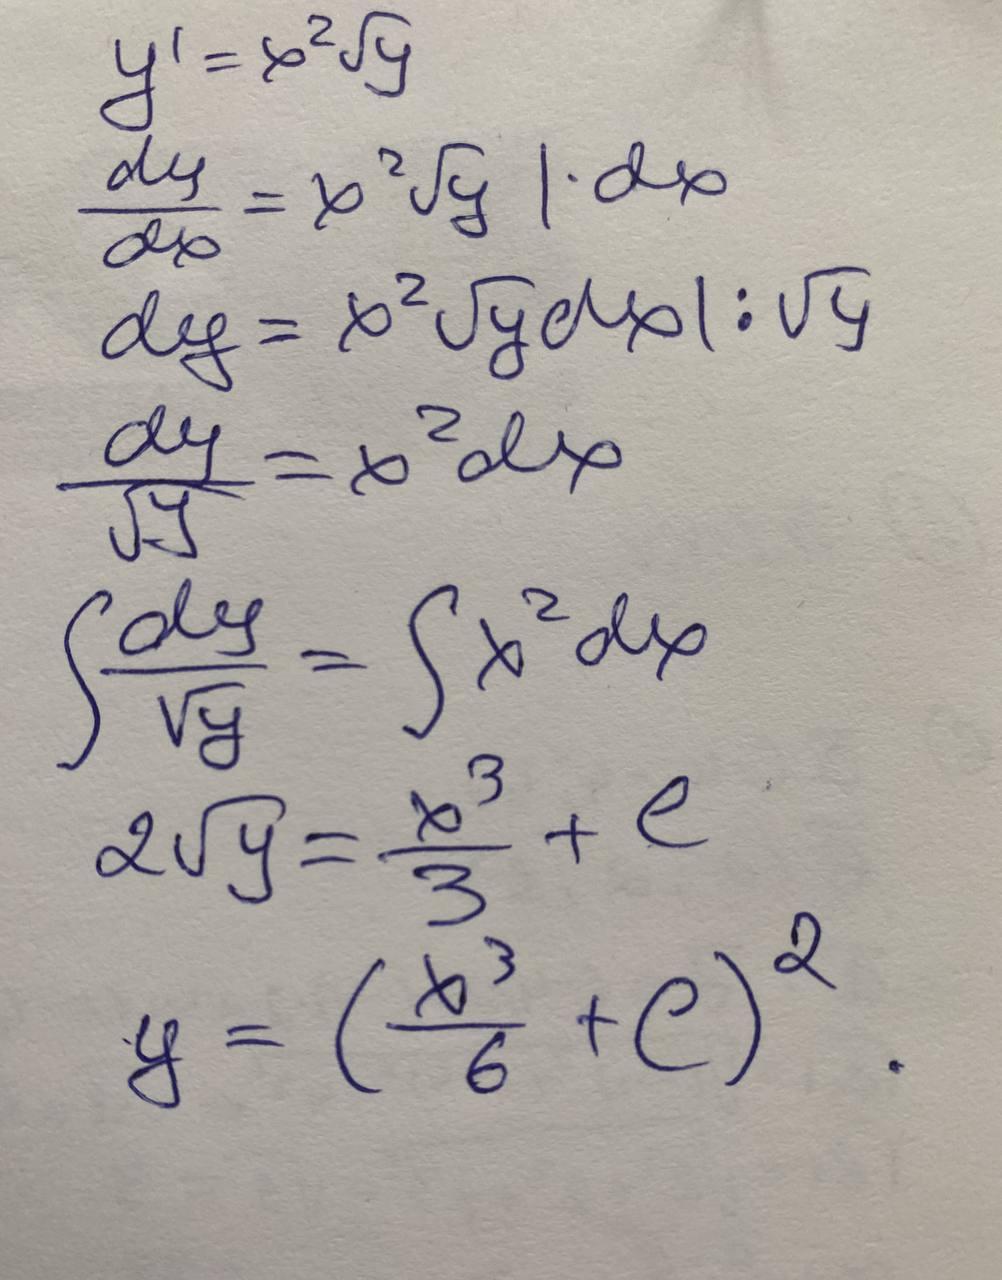 y' = x²√y
dy/dx = x²√y | · dx
dy = x²√y dx | : √y
dy/√y = x² dx
∫ dy/√y = ∫ x² dx
2√y = x³/3 + C
y = (x³/6 + C)².